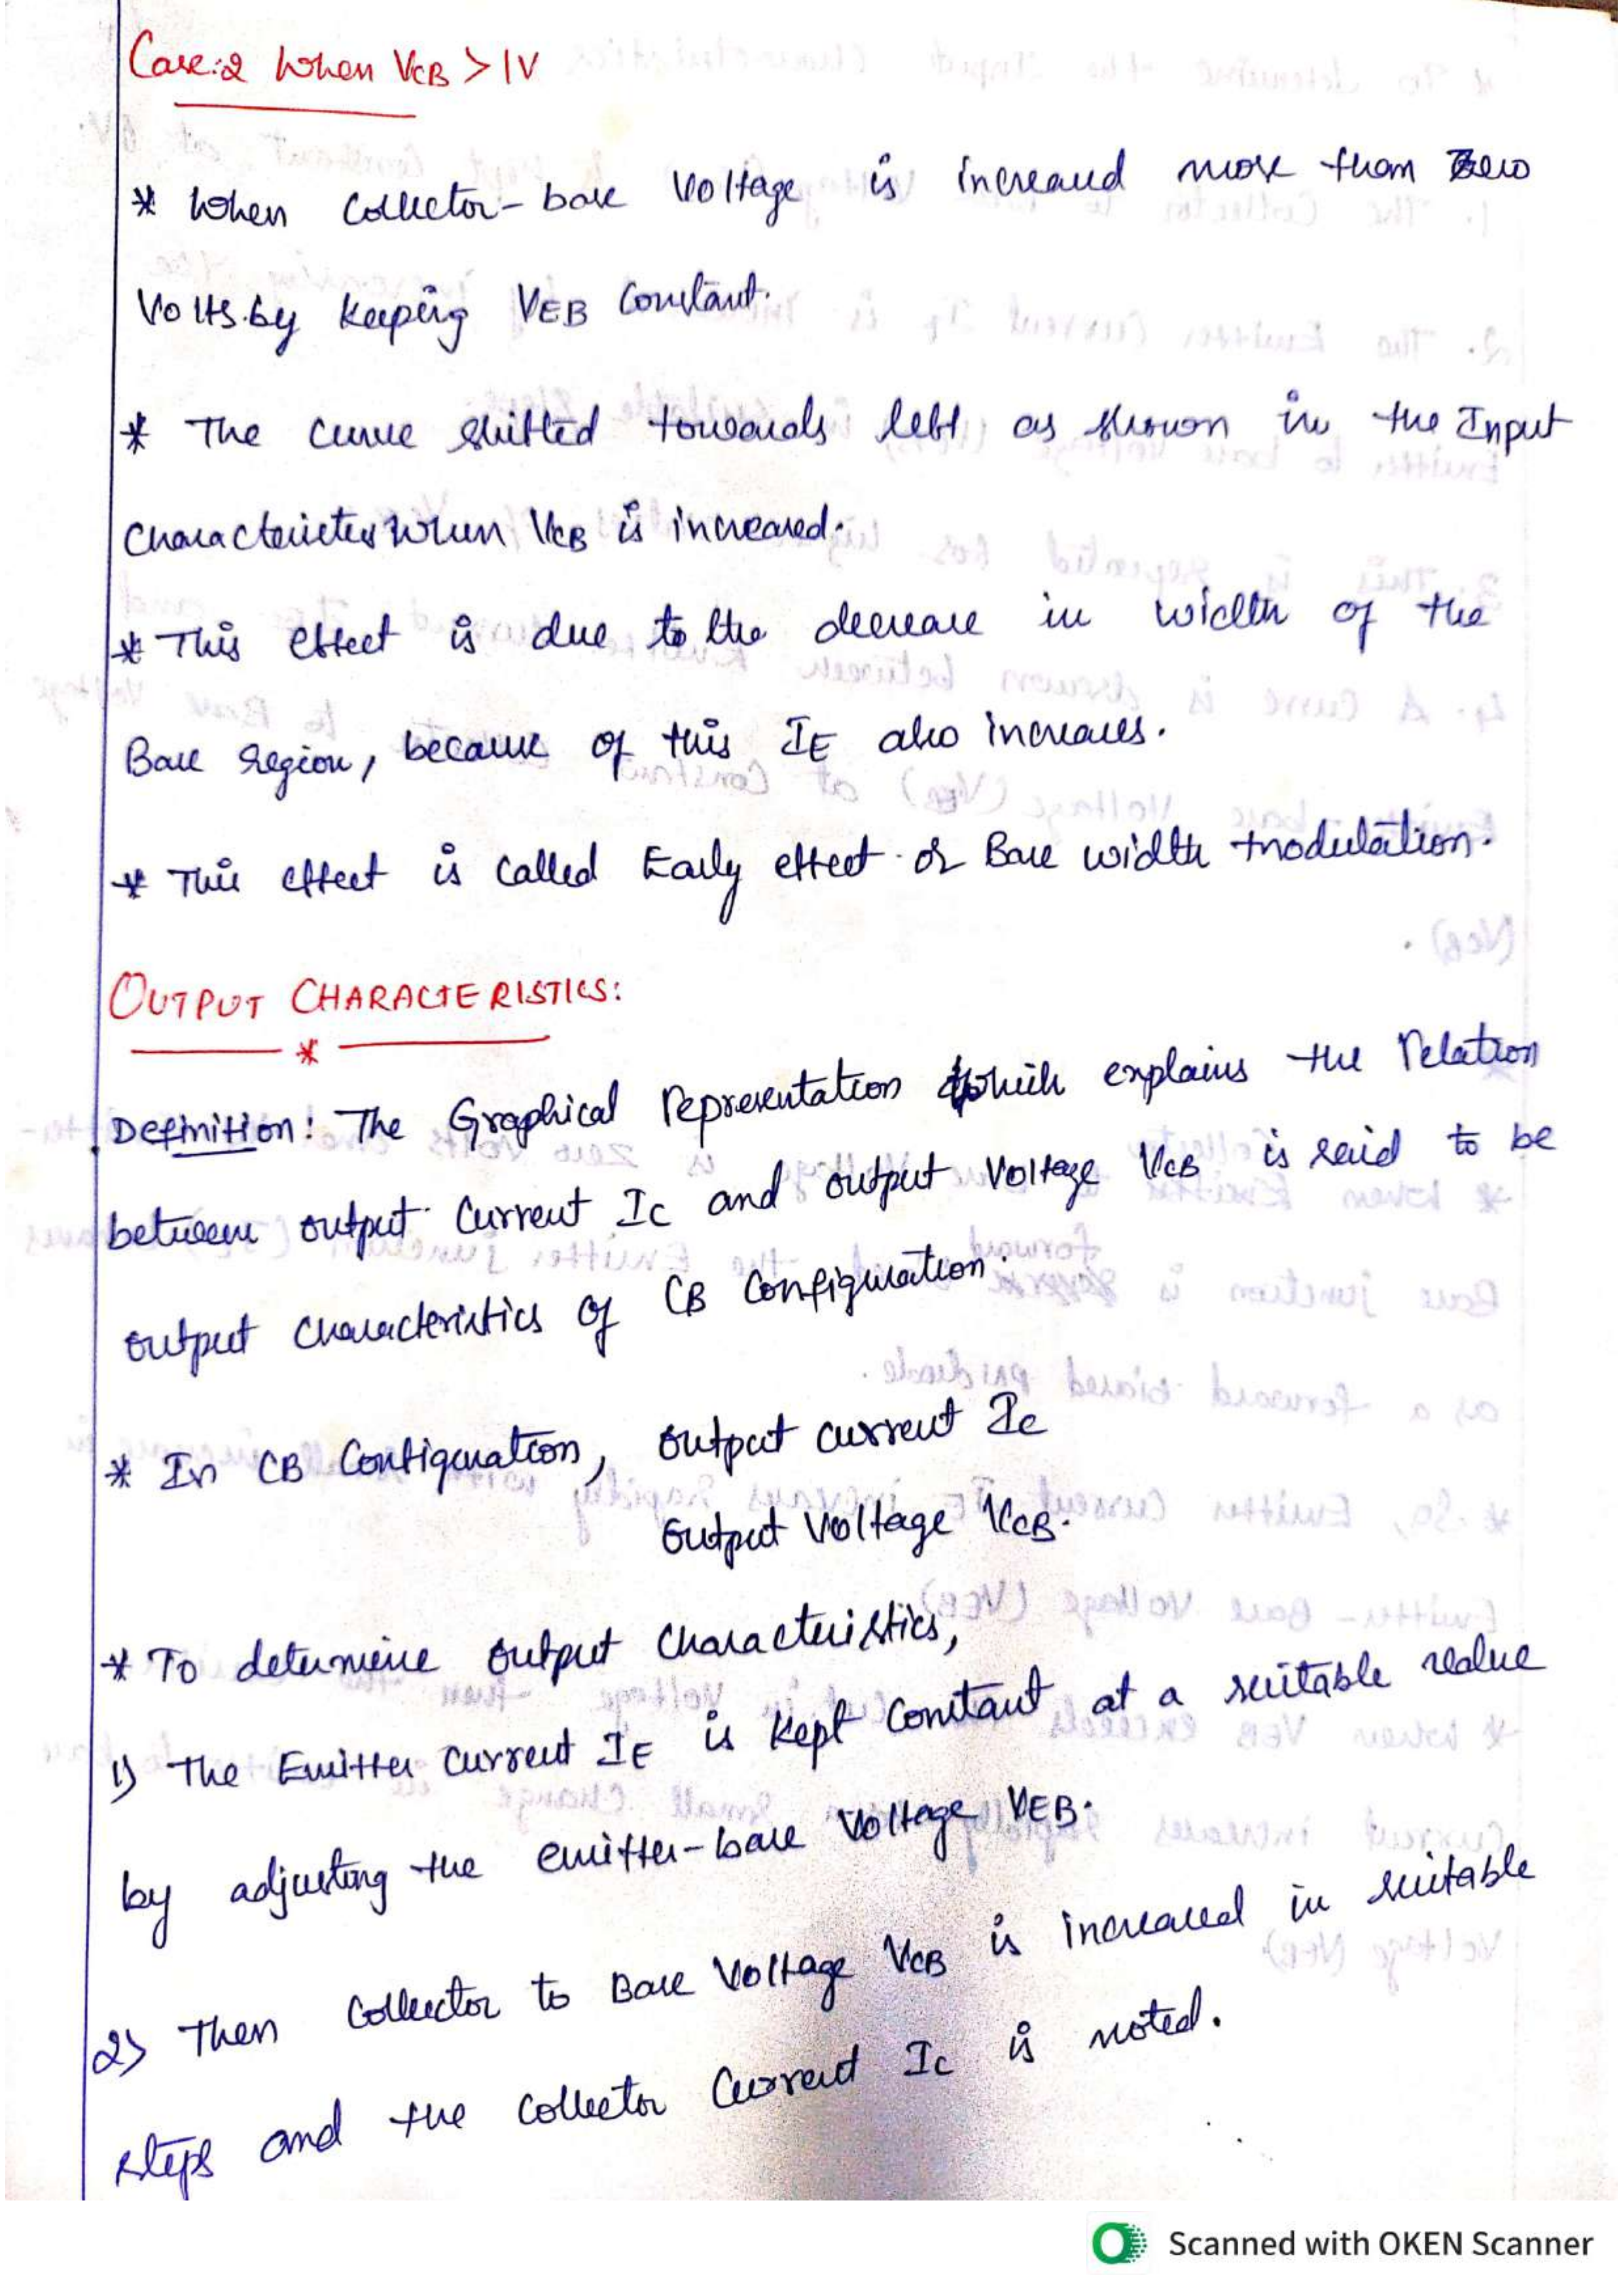 Case:2 When VCB > 1V
* When Collector-base Voltage is increased more than Zero
Volts. by keeping VEB Constant.
* The Curve shifted towards left as shown in the Input
Characteristics When VCB is increased.
* This effect is due to the decrease in width of the
Base region, because of this IE also increases.
* This effect is called Early effect or Base width modulation.
OUTPUT CHARACTERISTICS:
*
Definition: The Graphical representation which explains the relation
between output Current IC and output Voltage VCB is said to be
output characteristics of CB Configuration.
* In CB Configuration, output current IC
output Voltage VCB.
* To determine output characteristics,
1) The Emitter Current IE is kept Constant at a suitable value
by adjusting the emitter-base Voltage VEB.
2) Then Collector to Base Voltage VCB is increased in suitable
steps and the collector Current IC is noted.
Scanned with OKEN Scanner